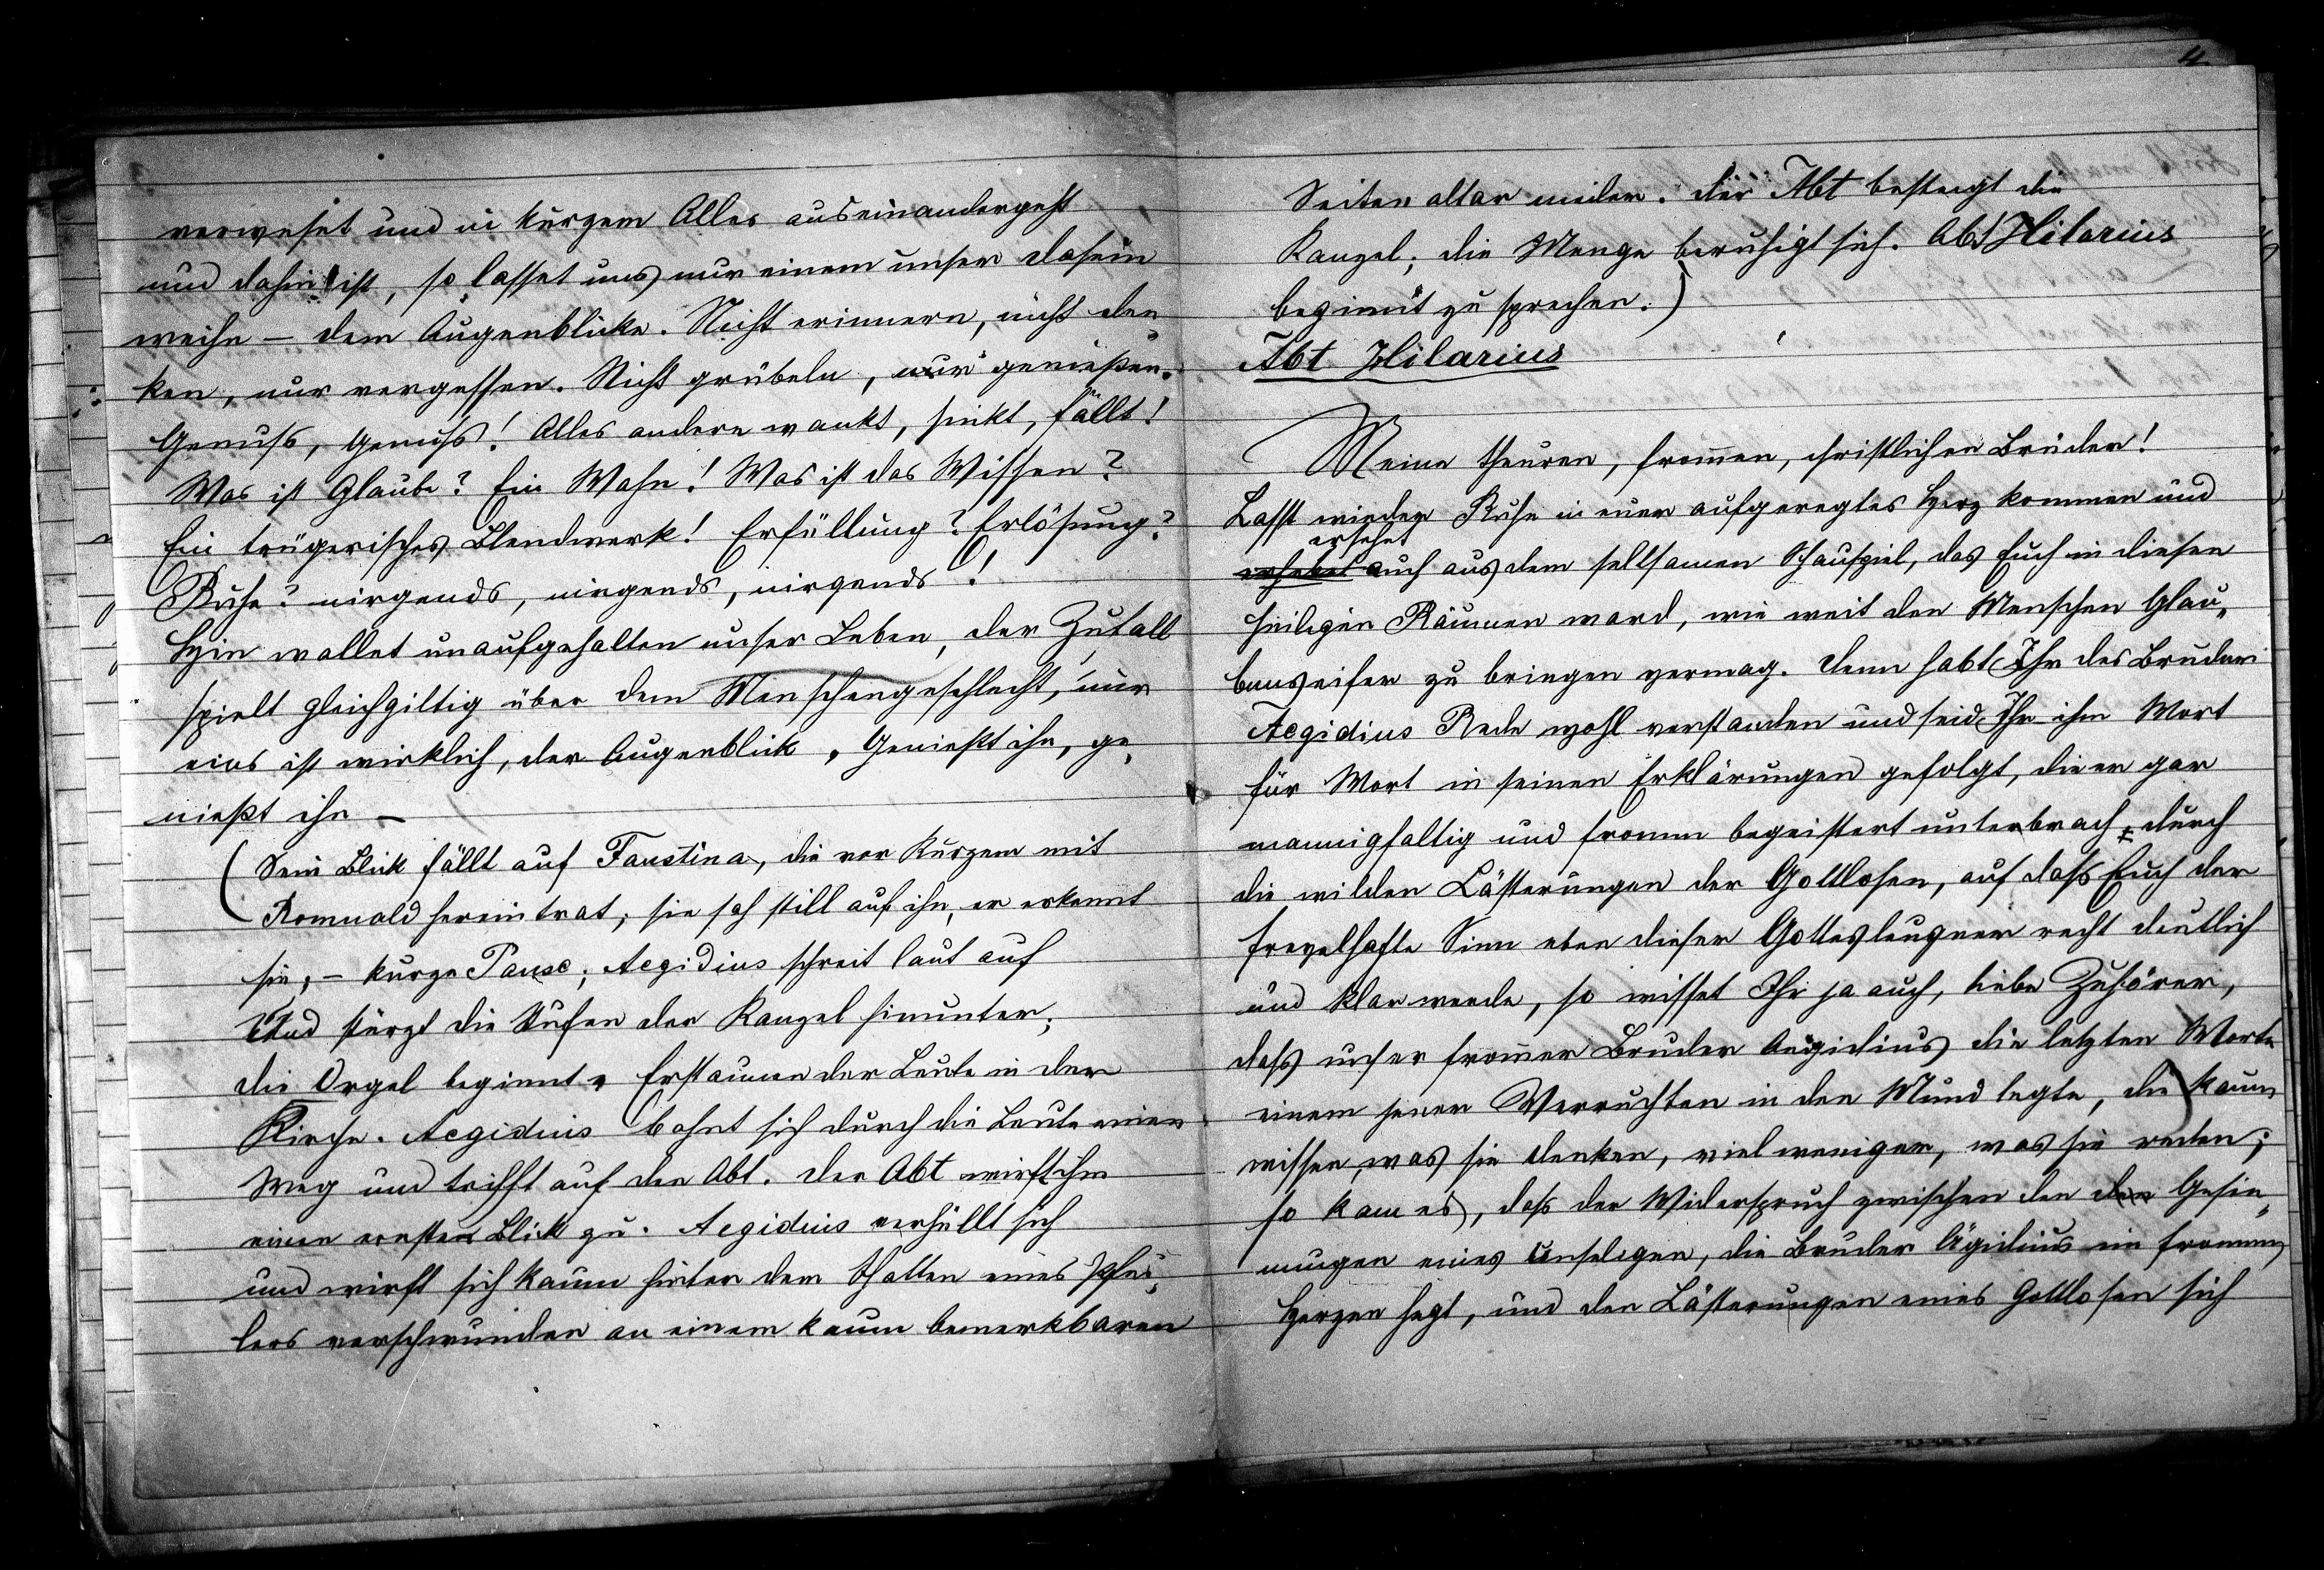 verweset und in kurzem Alles auseinandergeht
und dahin ist, so lasset uns nur einem unser Dasein
weihn – dem Augenblicke. Nicht erinnern, nicht den„
ken, nur vergessen. Nicht grübeln, nur genießen.
Genuß, Genuß! Alles andere wankt, sinkt, fällt!
Was ist Glaube? Ein Wahn! Was ist das Wissen?
Ein trügerisches Blendwerk! Erfüllung? Erlösung?
Ruhe? nirgends, nirgends, nirgends!
Hin wallet unaufgehalten unser Leben, der Zufall
spielt gleichgiltig über dem Menschengeschlecht, nur
eins ist wirklich, der Augenblick. Genießt ihn, ge„
nießt ihn –
(Sein Blick fällt auf Faustina, die vor Kurzem mit
Romuald hereintrat; sie sah still auf ihn, er erkennt
sie, – kurze Pause; Aegidius schreit laut auf
Und stürzt die Stufen der Kanzel hinunter;
die Orgel beginnt. Erstaunen der Leute in der
Kirche. Aegidius bahnt sich durch die Leute einen
Weg und trifft auf den Abt. Der Abt wirft ihm
einen ernsten Blick zu. Aegidius verhüllt sich
und wirft sich kaum hinter dem Schatten eines Pfei„
lers verschwunden an einem kaum bemerkbaren
4
Seitenaltar nieder. Der Abt besteigt die
Kanzel; die Menge beruhigt sich. Abt Hilarius
beginnt zu sprechen.)
Abt Hilarius
Meine theuren, frommen, christlichen Brüder!
Lasst wieder Ruhe in euer aufgeregtes Herz kommen und
ersehet
auch aus dem seltsamen Schauspiel, das Euch in diesen
heiligen Räumen ward, wie weit den Menschen Glau„
benseifer zu bringen vermag. Denn habt Ihr des Bruders
Aegidius Rede wohl verstanden und seid Ihr ihm Wort
für Wort in seinen Erklärungen gefolgt, die er gar
mannigfaltig und fromm begeistert unterbrach, durch
die wilden Lästerungen der Gottlosen, auf daß Euch der
frevelhafte Sinn eben dieser Gottesleugner recht deutlich
und klar werde, so wisset Ihr ja auch, liebe Zuhörer,
daß unser frommer Bruder Aegidius die letzten Worte
einem jener Verruchten in den Mund legte, die kaum
wissen, was sie denken, viel weniger, was sie reden;
so kam es, daß der Widerspruch zwischen den den Gesin„
nungen eines Unseligen, die Bruder Ägidius im frommen
Herzen hegt, und den Lästerungen eines Gottlosen sich